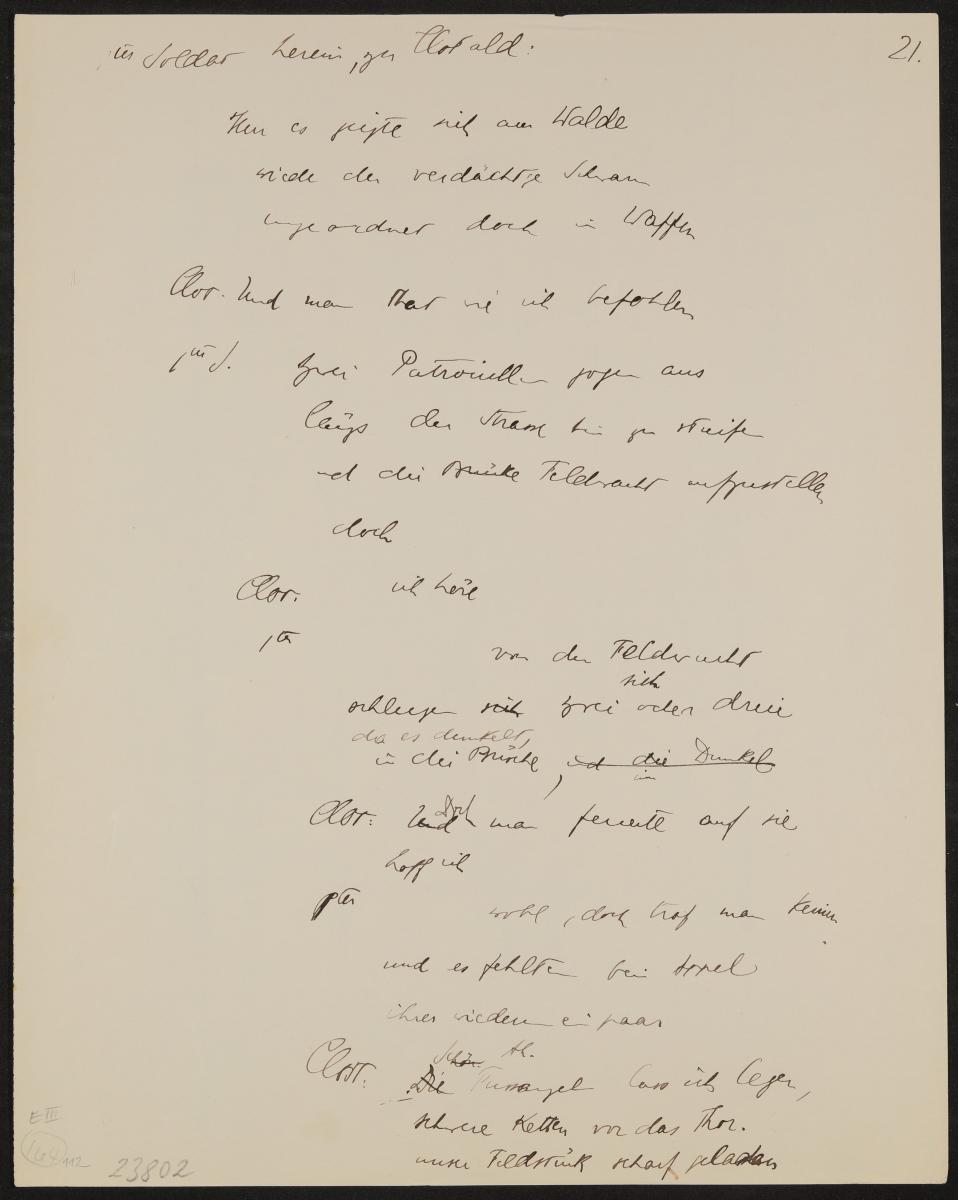 1ter Soldat herein, zu Clotald: 21.
Herr es zeigte sich am Walde
wieder der verdächtge Schwarm
ungeordnet doch in Waffen
Clot. Und man that wie ich befohlen
1ter S. Zwei Patrouillen zogen aus
längs der Strasse hin zu streifen
und die Brücke Feldwacht aufzustellen
doch
Clot. ich höre
1ter von der Feldwacht
sich
schleichen sich zwei oder dreie
da es dunkelt,
in die Büsche, und die Dunkel
im
Doch
Clot: Und man feuerte auf sie
hoff ich
1ter wohl, doch traf man keinen
und es fehlten beim Appel
ihrer wiederum ein paar
Schön.
Clot: Die Fussangel lass ich legen,
schwere Ketten vor das Thor.
unser Feldstück scharf geladen
E III
164
112
23802